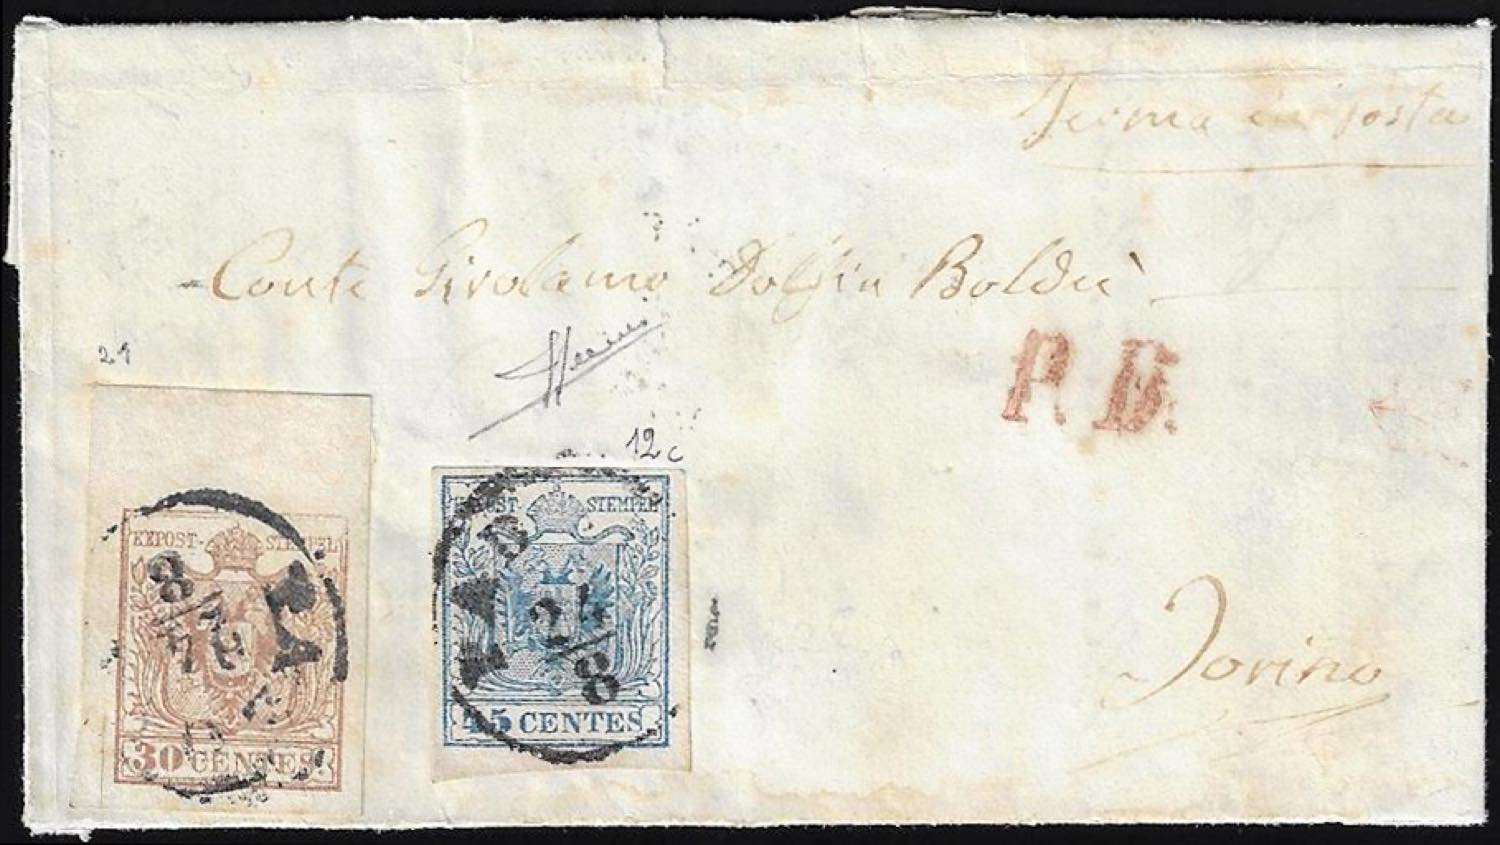 Ferma in posta
Conte Girolamo Dolfin Boldù
21
P. D.
12c
KKPOST-STEMPEL
30 CENTES.
24/8
KKPOST-STEMPEL
45 CENTES.
24/8
Torino